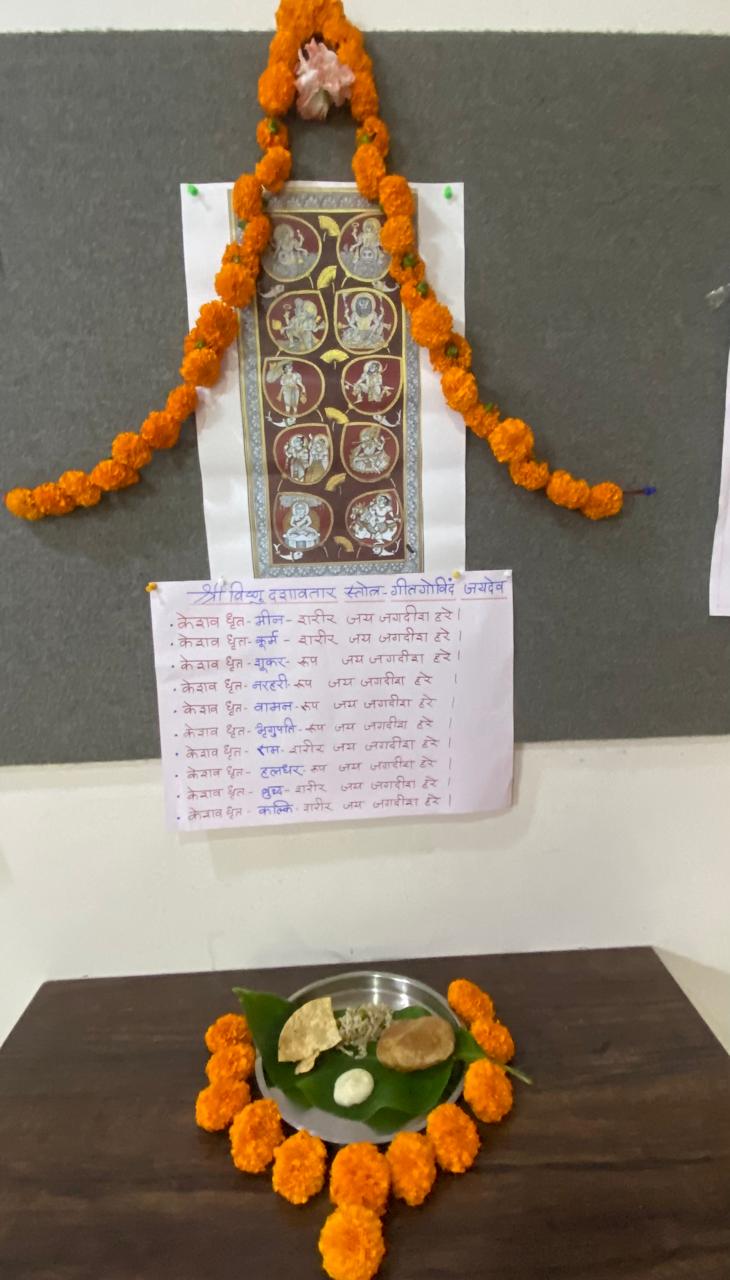 श्री विष्णु दशावतार स्तोत्र-गीतगोविंद जयदेव
· केशव धृत- मीन- शरीर जय जगदीश हरे।
· केशव धृत- कूर्म - शरीर जय जगदीश हरे।
· केशव धृत- शूकर- रूप जय जगदीश हरे।
· केशव धृत- नरहरी- रूप जय जगदीश हरे ।
· केशव धृत- वामन- रूप जय जगदीश हरे ।
· केशव धृत- भृगुपति- रूप जय जगदीश हरे ।
· केशव धृत- राम- शरीर जय जगदीश हरे ।
· केशव धृत- हलधर- रूप जय जगदीश हरे ।
· केशव धृत- बुध्द- शरीर जय जगदीश हरे ।
· केशव धृत- कल्कि- शरीर जय जगदीश हरे ।